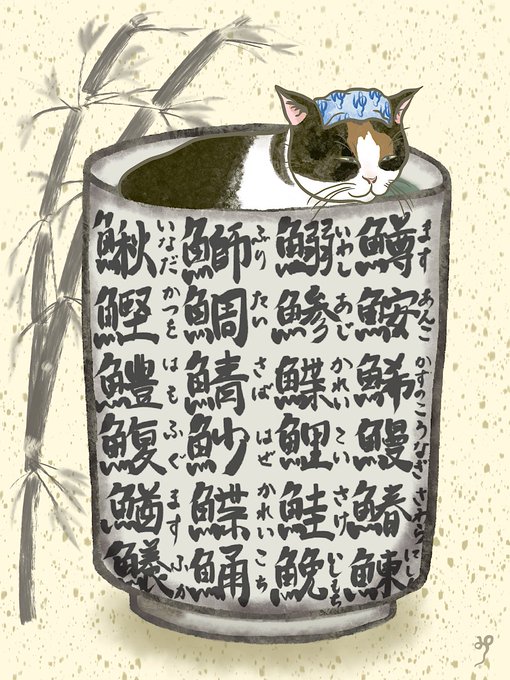 鱒 ます
鮟 あんこ
鯑 かずのこ
鰻 うなぎ
鰆 さわら
鰊 にしん
鰯 いわし
鯵 あじ
鰈 かれい
鯉 こい
鮭 さけ
鮸
鰤 ふり
鯛 たい
鯖 さば
魦 はぜ
鰈 かれい
鯒 こち
鰍 いなだ
鰹 かつを
鱧 はも
鰒 ふく
鰌 ます
鱶 ふか
ゆ ゆ ゆ